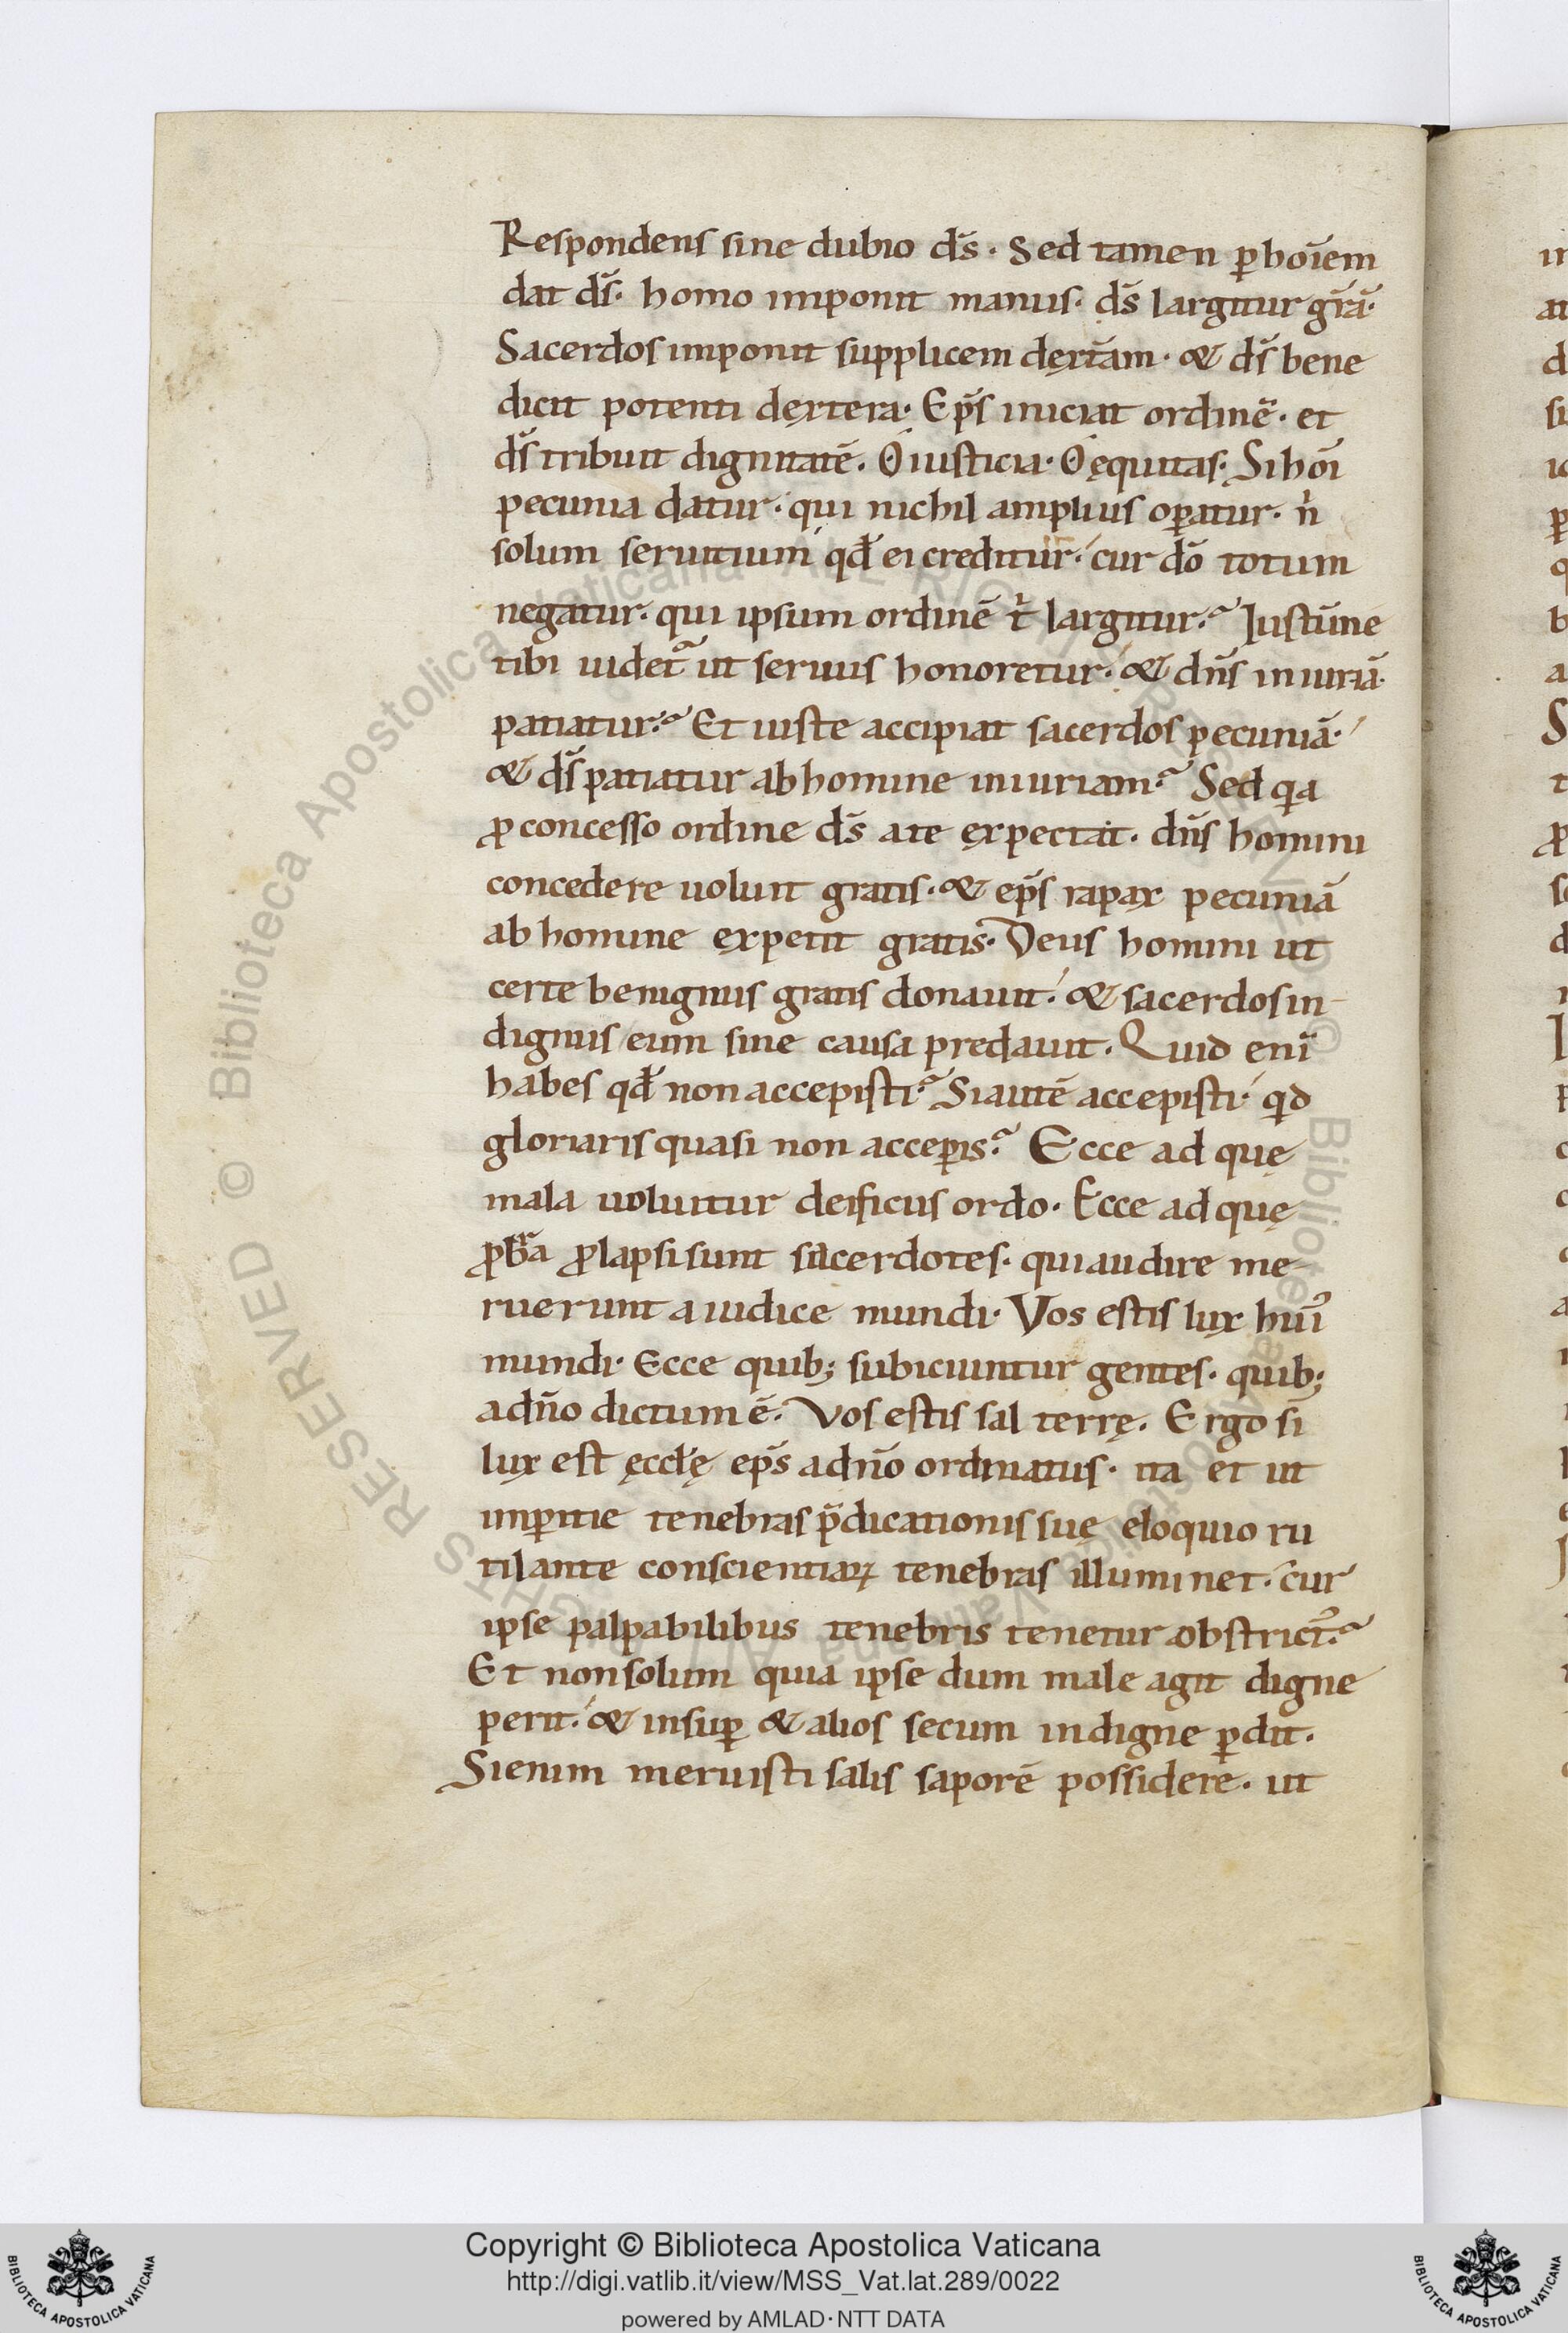 Respondens sine dubio ds̄. Sed tamen ꝑ hoīem
dat ds̄. homo imponit manus. ds̄ largitur gr̄ā.
Sacerdos imponit supplicem dęxtā̄m. & ds̄ bene
dicit potenti dęxtera. Ep̄s iniciat ordinē. et
ds̄ tribuit dignitatē. O iusticia. O ęquitas. Si hoī
pecunia datur. qui nichil amplius oꝑatur. ñ
solum seruitium qd̄ ei creditur. cur dō totum
negatur. qui ipsum ordinē t̄ largitur? Iustūne
tibi uidet̃ ut seruus honoretur. & dn̄s iniuriā
patiatur? Et iuste accipiat sacerdos pecuniā.
& ds̄ patiatur ab homine iniuriam? Sed qa
ꝓ concesso ordine ds̄ a te ęxpectat. dn̄s homini
concedere uoluit gratis. & ep̄s rapax pecuniā
ab homine ęxpetit gratis. Deus homini ut
certe benignus gratis donauit. & sacerdos in-
dignus eum sine causa predauit. Quid enī
habes qd̄ non accepisti? Si autē accepisti. qd
gloriaris quasi non acceꝑis? Ecce ad quę
mala uoluitur deificus ordo. Ecce ad quę
ꝓbr̄a ꝓlapsi sunt sacerdotes. qui audire me-
ruerunt a iudice mundi. Vos estis lux huī᾽
mundi. Ecce quib; subiciuntur gentes. quib;
a dño dictum ē. Vos estis sal terrę. Ergo si
lux est ęccłę ep̄s a dño ordinatus. ita et ut
imꝑitie tenebras p̄dicationis suę eloquio ru
tilante conscientiaꝝ tenebras illuminet. cur
ipse palpabilibus tenebris tenetur obstrict᾽?
Et non solum quia ipse dum male agit digne
perit. & insuꝑ & alios secum indigne ꝑdit.
Si enim meruisti salis saporē possidere. ut
Copyright © Biblioteca Apostolica Vaticana
http://digi.vatlib.it/view/MSS_Vat.lat.289/0022
powered by AMLAD·NTT DATA